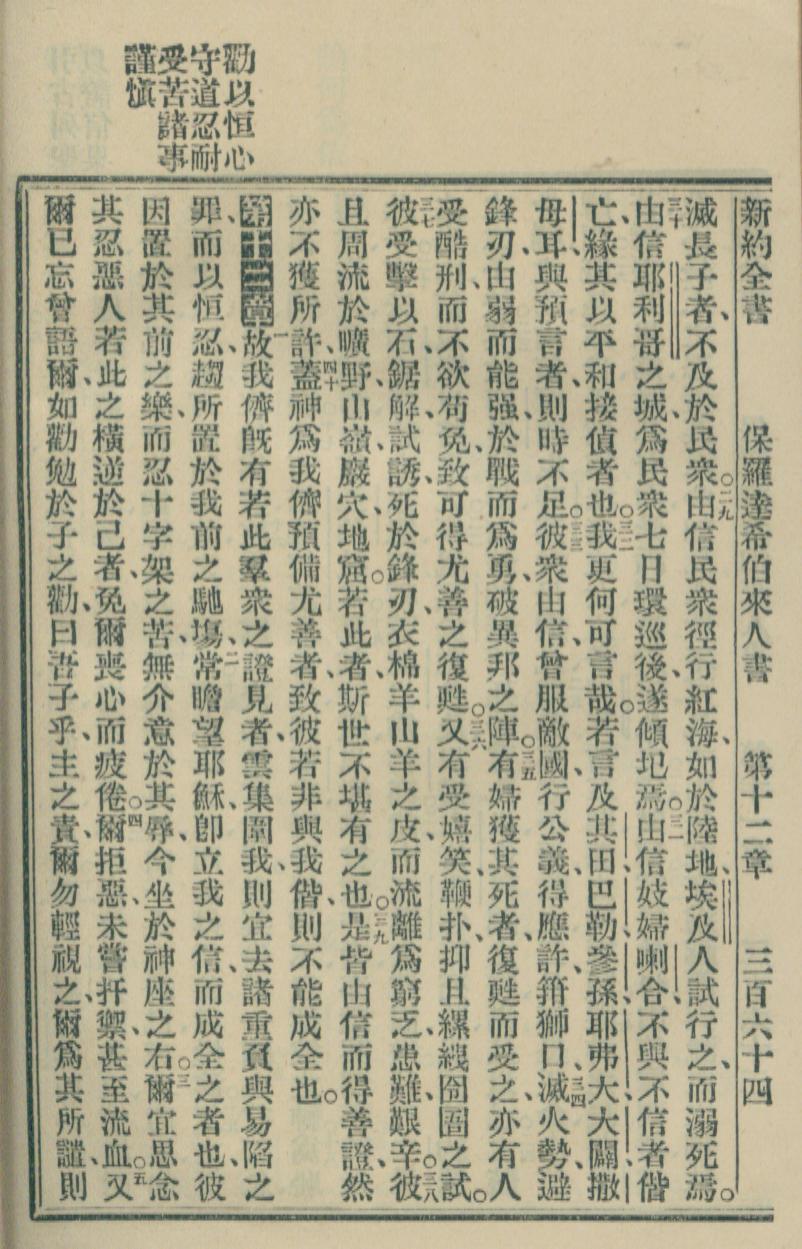 勸以恒心
守道忍耐
受苦諸事
謹慎
新約全書 保羅達希伯來人書 第十二章 三百六十四
滅長子者、不及於民衆。二九由信民衆徑行紅海、如於陸地、埃及人試行之、而溺死焉。
三十由信耶利哥之城、爲民衆七日環巡後、遂傾圮焉。三一由信妓婦喇合、不與不信者偕
亡、緣其以平和接偵者也。三二我更何可言哉。若言及其田、巴勒、參孫、耶弗大、大闢、撒
母耳、與預言者、則時不足。三三彼衆由信、曾服敵國、行公義、得應許、箝獅口、三四滅火勢、避
鋒刃、由弱而能强、於戰而爲勇、破異邦之陣。三五有婦獲其死者、復甦而受之、亦有人
受酷刑、而不欲苟免、致可得尤善之復甦。三六又有受嬉笑、鞭扑、抑且縲絏囹圄之試。
三七彼受擊以石、鋸解、試誘、死於鋒刃、衣棉羊山羊之皮、而流離、爲窮乏、患難、艱辛。三八彼
且周流於曠野、山嶺、巖穴、地窟。若此者、斯世不堪有之也。三九是皆由信而得善證、然
亦不獲所許、四十蓋神爲我儕預備尤善者、致彼若非與我偕、則不能成全也。
第十二章一故我儕旣有若此羣衆之證見者、雲集圍我、則宜去諸重負、與易陷之
罪、而以恒忍、趨所置於我前之馳塲、二常瞻望耶穌、卽立我之信、而成全之者也、彼
因置於其前之樂、而忍十字架之苦、無介意於其辱、今坐於神座之右。三爾宜思念
其忍惡人若此之橫逆於己者、免爾喪心而疲倦。四爾拒惡、未嘗扞禦甚至流血。五又
爾已忘曾語爾、如勸勉於子之勸、曰、吾子乎、主之責、爾勿輕視之、爾爲其所譴、則